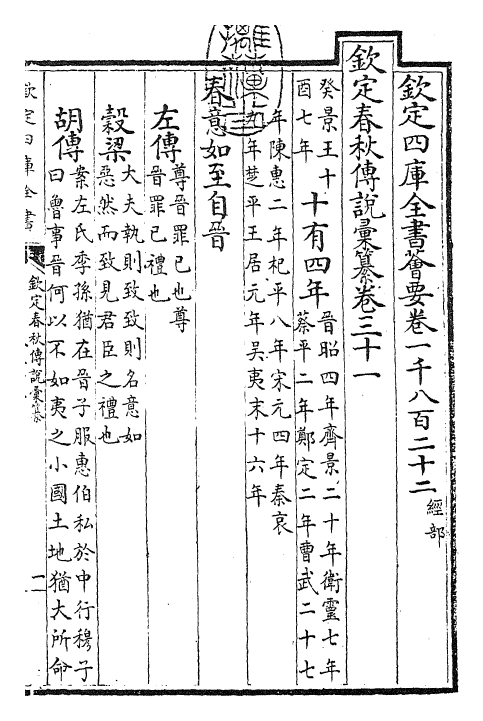 欽定四庫全書薈要卷一千八百二十二 經部
欽定春秋傳說彙纂卷三十一
癸景王十
酉七年
十有四年
晉昭四年齊景二十年衛靈七年
蔡平二年鄭定二年曹武二十七
年陳惠二年杞平八年宋元四年秦哀
九年楚平王居元年吴夷末十六年
春意如至自晉
左傳
尊晉罪已也尊
晉罪已禮也
穀梁
大夫執則致致則名意如
惡然而致見君臣之禮也
胡傳
案左氏季孫猶在晉子服惠伯私於中行穆子
曰魯事晉何以不如夷之小國土地猶大所命
欽定四庫全書
欽定春秋傳說彙纂